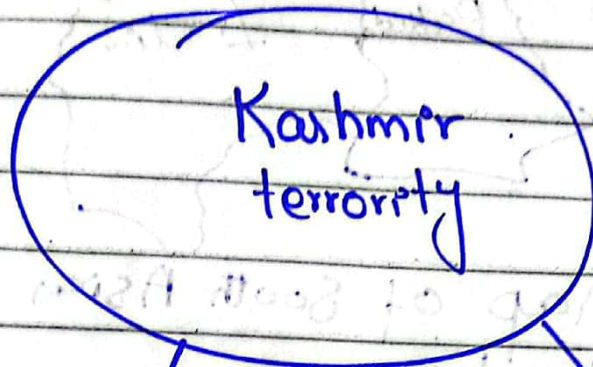 Kashmir
terrority